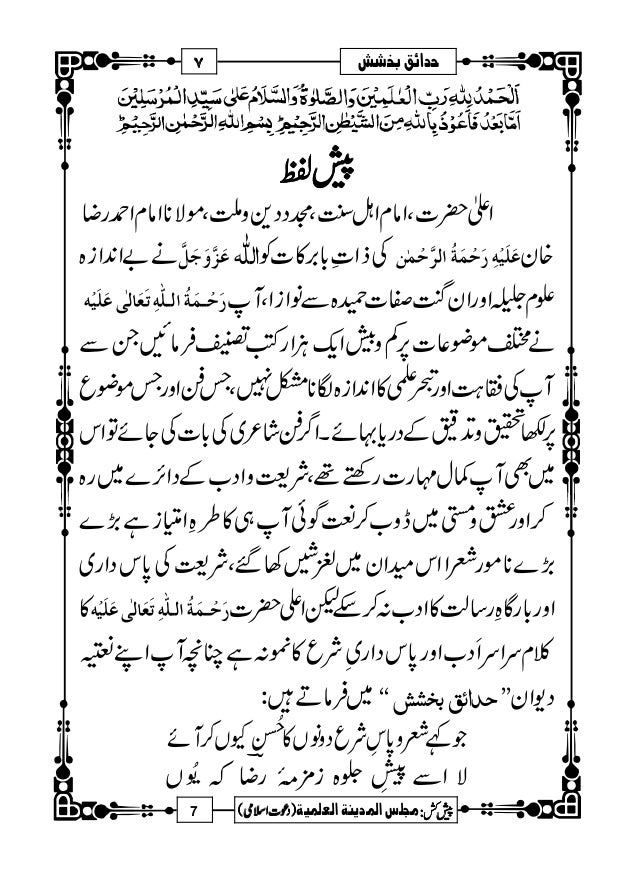 حدائق بخشش
۷
اَلْحَمْدُ لِلّٰهِ رَبِّ الْعٰلَمِیْنَ وَالصَّلٰوةُ وَالسَّلَامُ عَلٰی سَیِّدِ الْمُرْسَلِیْنَ
اَمَّابَعْدُ فَاَعُوْذُ بِاللّٰهِ مِنَ الشَّیْطٰنِ الرَّجِیْمِ ؕ بِسْمِ اللّٰهِ الرَّحْمٰنِ الرَّحِیْمِ ؕ
پیش لفظ
اعلیٰ حضرت ، امام اہل سنت ، مجدد دین و ملت ، مولانا امام احمد رضا
خان عَلَیْهِ رَحْمَةُ الرَّحْمٰن کی ذاتِ بابرکات کو اللّٰه عَزَّوَجَلَّ نے بے اندازہ
علوم جلیلہ اور ان گنت صفات حمیدہ سے نوازا ، آپ رَحْمَةُ اللّٰهِ تَعَالٰی عَلَیْه
نے مختلف موضوعات پر کم و بیش ایک ہزار کتب تصنیف فرمائیں جن سے
آپ کی فقاہت اور تبحر علمی کا اندازہ لگانا مشکل نہیں ، جس فن اور جس موضوع
پر لکھا تحقیق و تدقیق کے دریا بہائے ۔ اگر فن شاعری کی بات کی جائے تو اس
میں بھی آپ کمال مہارت رکھتے تھے ، شریعت و ادب کے دائرے میں رہ
کر اور عشق و مستی میں ڈوب کر نعت گوئی آپ ہی کا طرہ امتیاز ہے بڑے
بڑے نامور شعرا اس میدان میں لغزشیں کھا گئے ، شریعت کی پاس داری
اور بارگاہِ رسالت کا ادب نہ کر سکے لیکن اعلی حضرت رَحْمَةُ اللّٰهِ تَعَالٰی عَلَیْه کا
کلام سراسر اَدب اور پاس داریِ شرع کا نمونہ ہے چنانچہ آپ اپنے نعتیہ
دیوان ”حدائق بخشش“ میں فرماتے ہیں :
جو کہے شعر و پاسِ شرع دونوں کا حُسن کیوں کر آئے
لا اسے پیشِ جلوہ زمزمۂ رضا کہ یُوں
پیش کش : مجلس المدینة العلمیة (دعوت اسلامی)
7